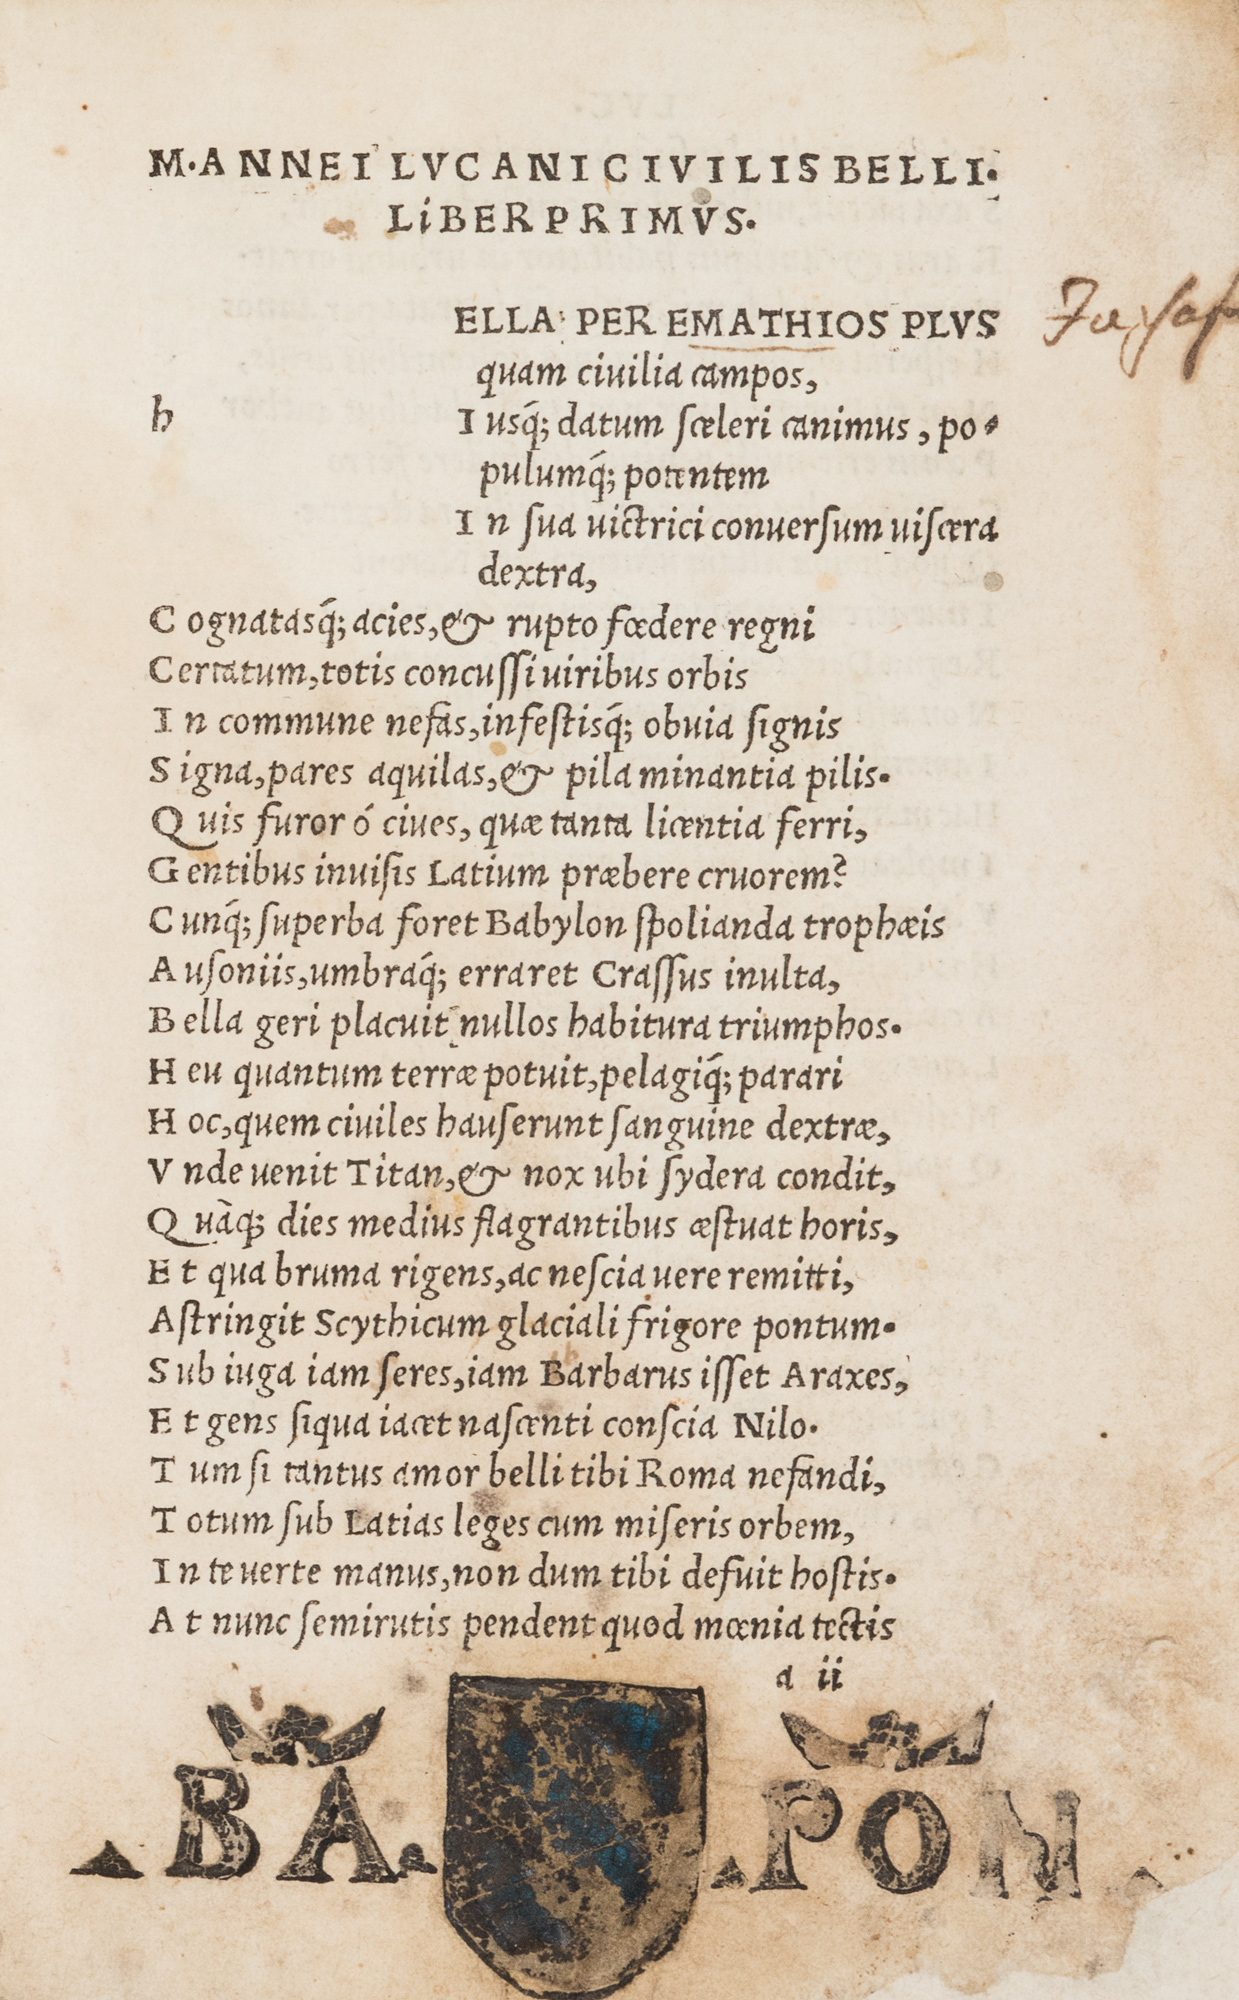 M·ANNEI LVCANI CIVILIS BELLI·
LiBER PRIMVS·
ELLA PER EMATHIOS PLVS
quam ciuilia campos,
h
I usq́; datum sceleri canimus, po-
pulumq́; potentem
I n sua uictrici conuersum uiscera
dextra,
C ognatasq́; acies, & rupto fœdere regni
Certatum, totis concussi uiribus orbis
I n commune nefas, infestisq́; obuia signis
S igna, pares aquilas, & pila minantia pilis·
Q uis furor ó ciues, quæ tanta licentia ferri,
G entibus inuisis Latium præbere cruorem?
C unq́; superba foret Babylon spolianda trophæis
A usoniis, umbraq́; erraret Crassus inulta,
B ella geri placuit nullos habitura triumphos·
H eu quantum terræ potuit, pelagiq́; parari
H oc, quem ciuiles hauserunt sanguine dextræ,
V nde uenit Titan, & nox ubi sydera condit,
Q uāq; dies medius flagrantibus æstuat horis,
E t qua bruma rigens, ac nescia uere remitti,
Astringit Scythicum glaciali frigore pontum·
S ub iuga iam seres, iam Barbarus isset Araxes,
E t gens siqua iacet nascenti conscia Nilo·
T um si tantus amor belli tibi Roma nefandi,
T otum sub Latias leges cum miseris orbem,
I n te uerte manus, non dum tibi defuit hostis·
A t nunc semirutis pendent quod mœnia tectis
a ii
BA PON